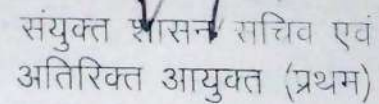 संयुक्त शासन सचिव एवं
अतिरिक्त आयुक्त (प्रथम)